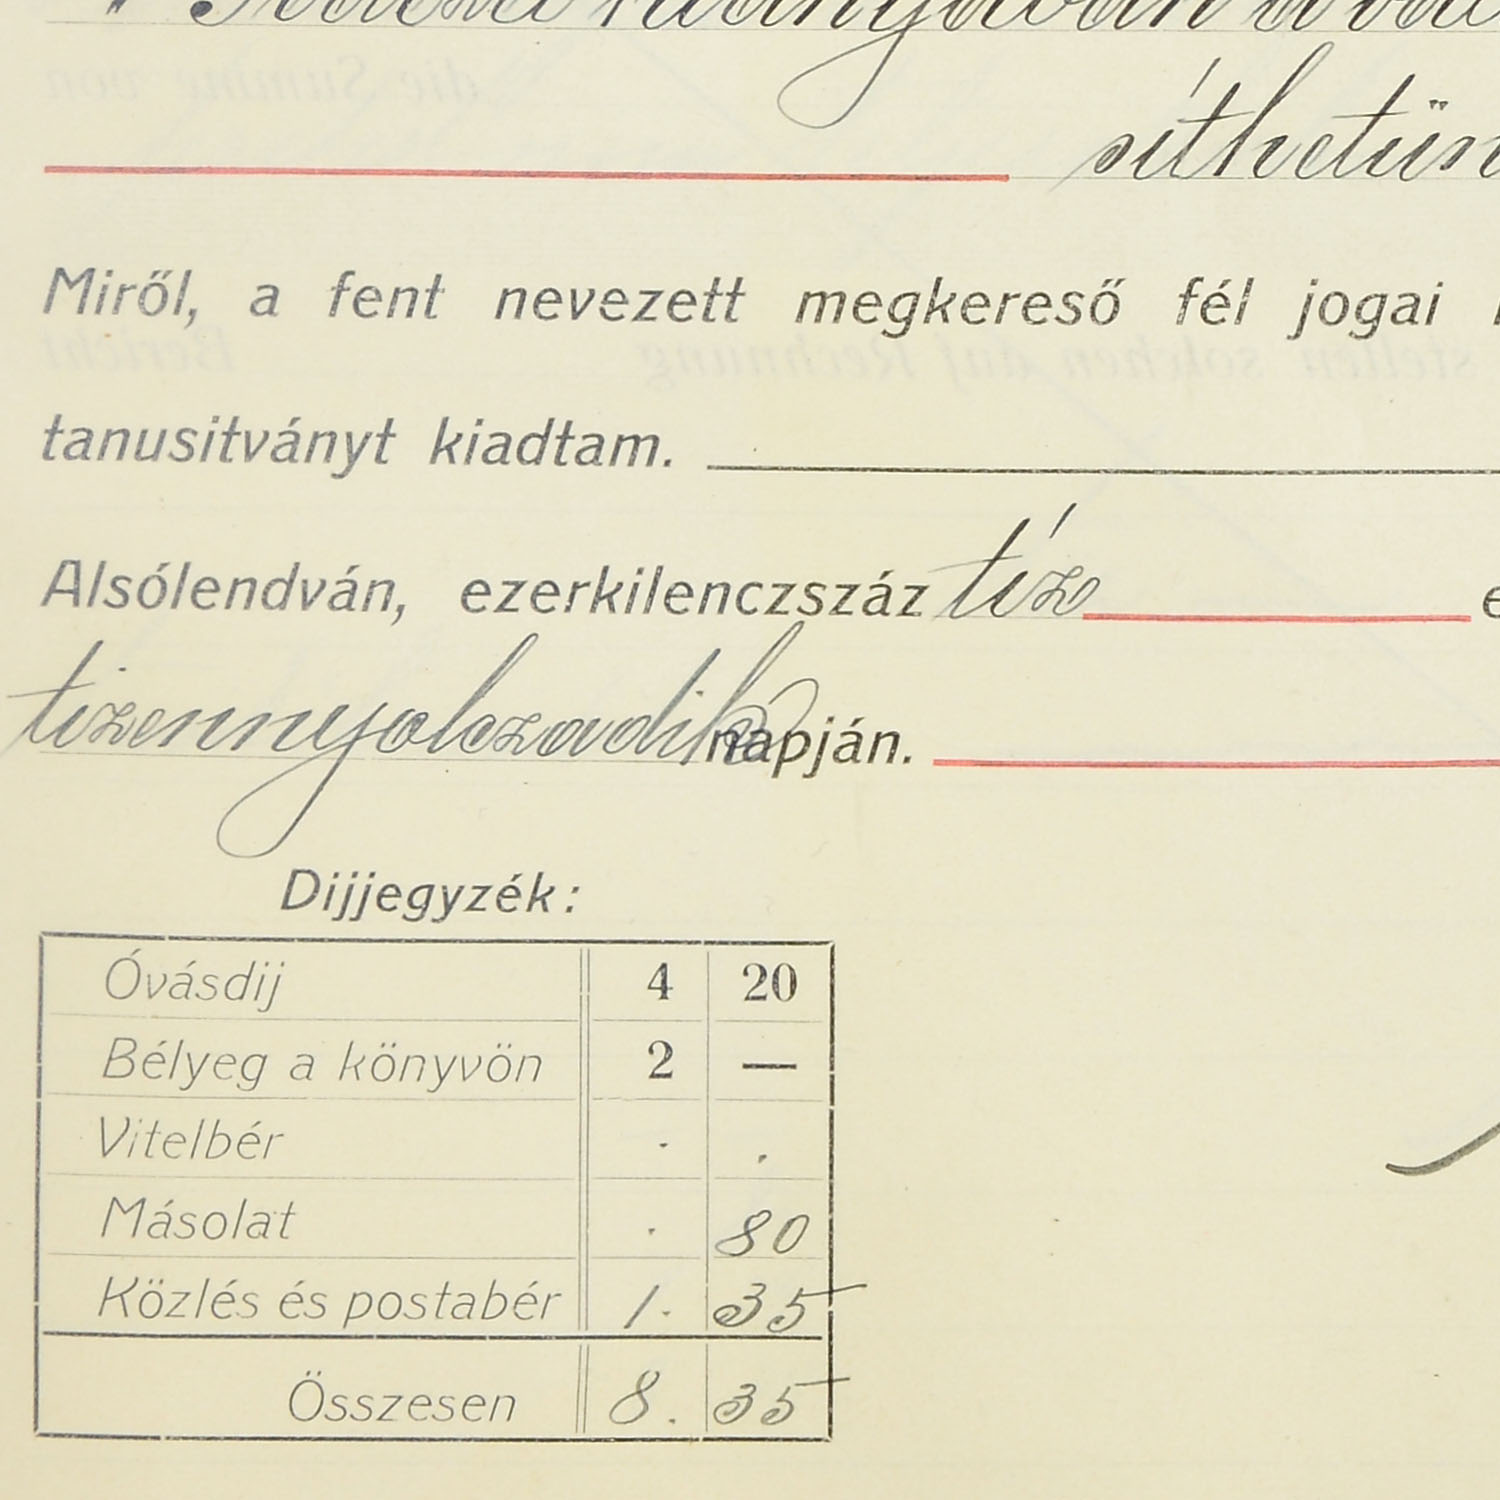 síthetün
Miről, a fent nevezett megkereső fél jogai
tanusitványt kiadtam.
Alsólendván, ezerkilenczszáz tíz
tizennyolczadik napján.
Dijjegyzék:
Óvásdij 4 20
Bélyeg a könyvön 2 —
Vitelbér . .
Másolat . 80
Közlés és postabér 1. 35
Összesen 8. 35